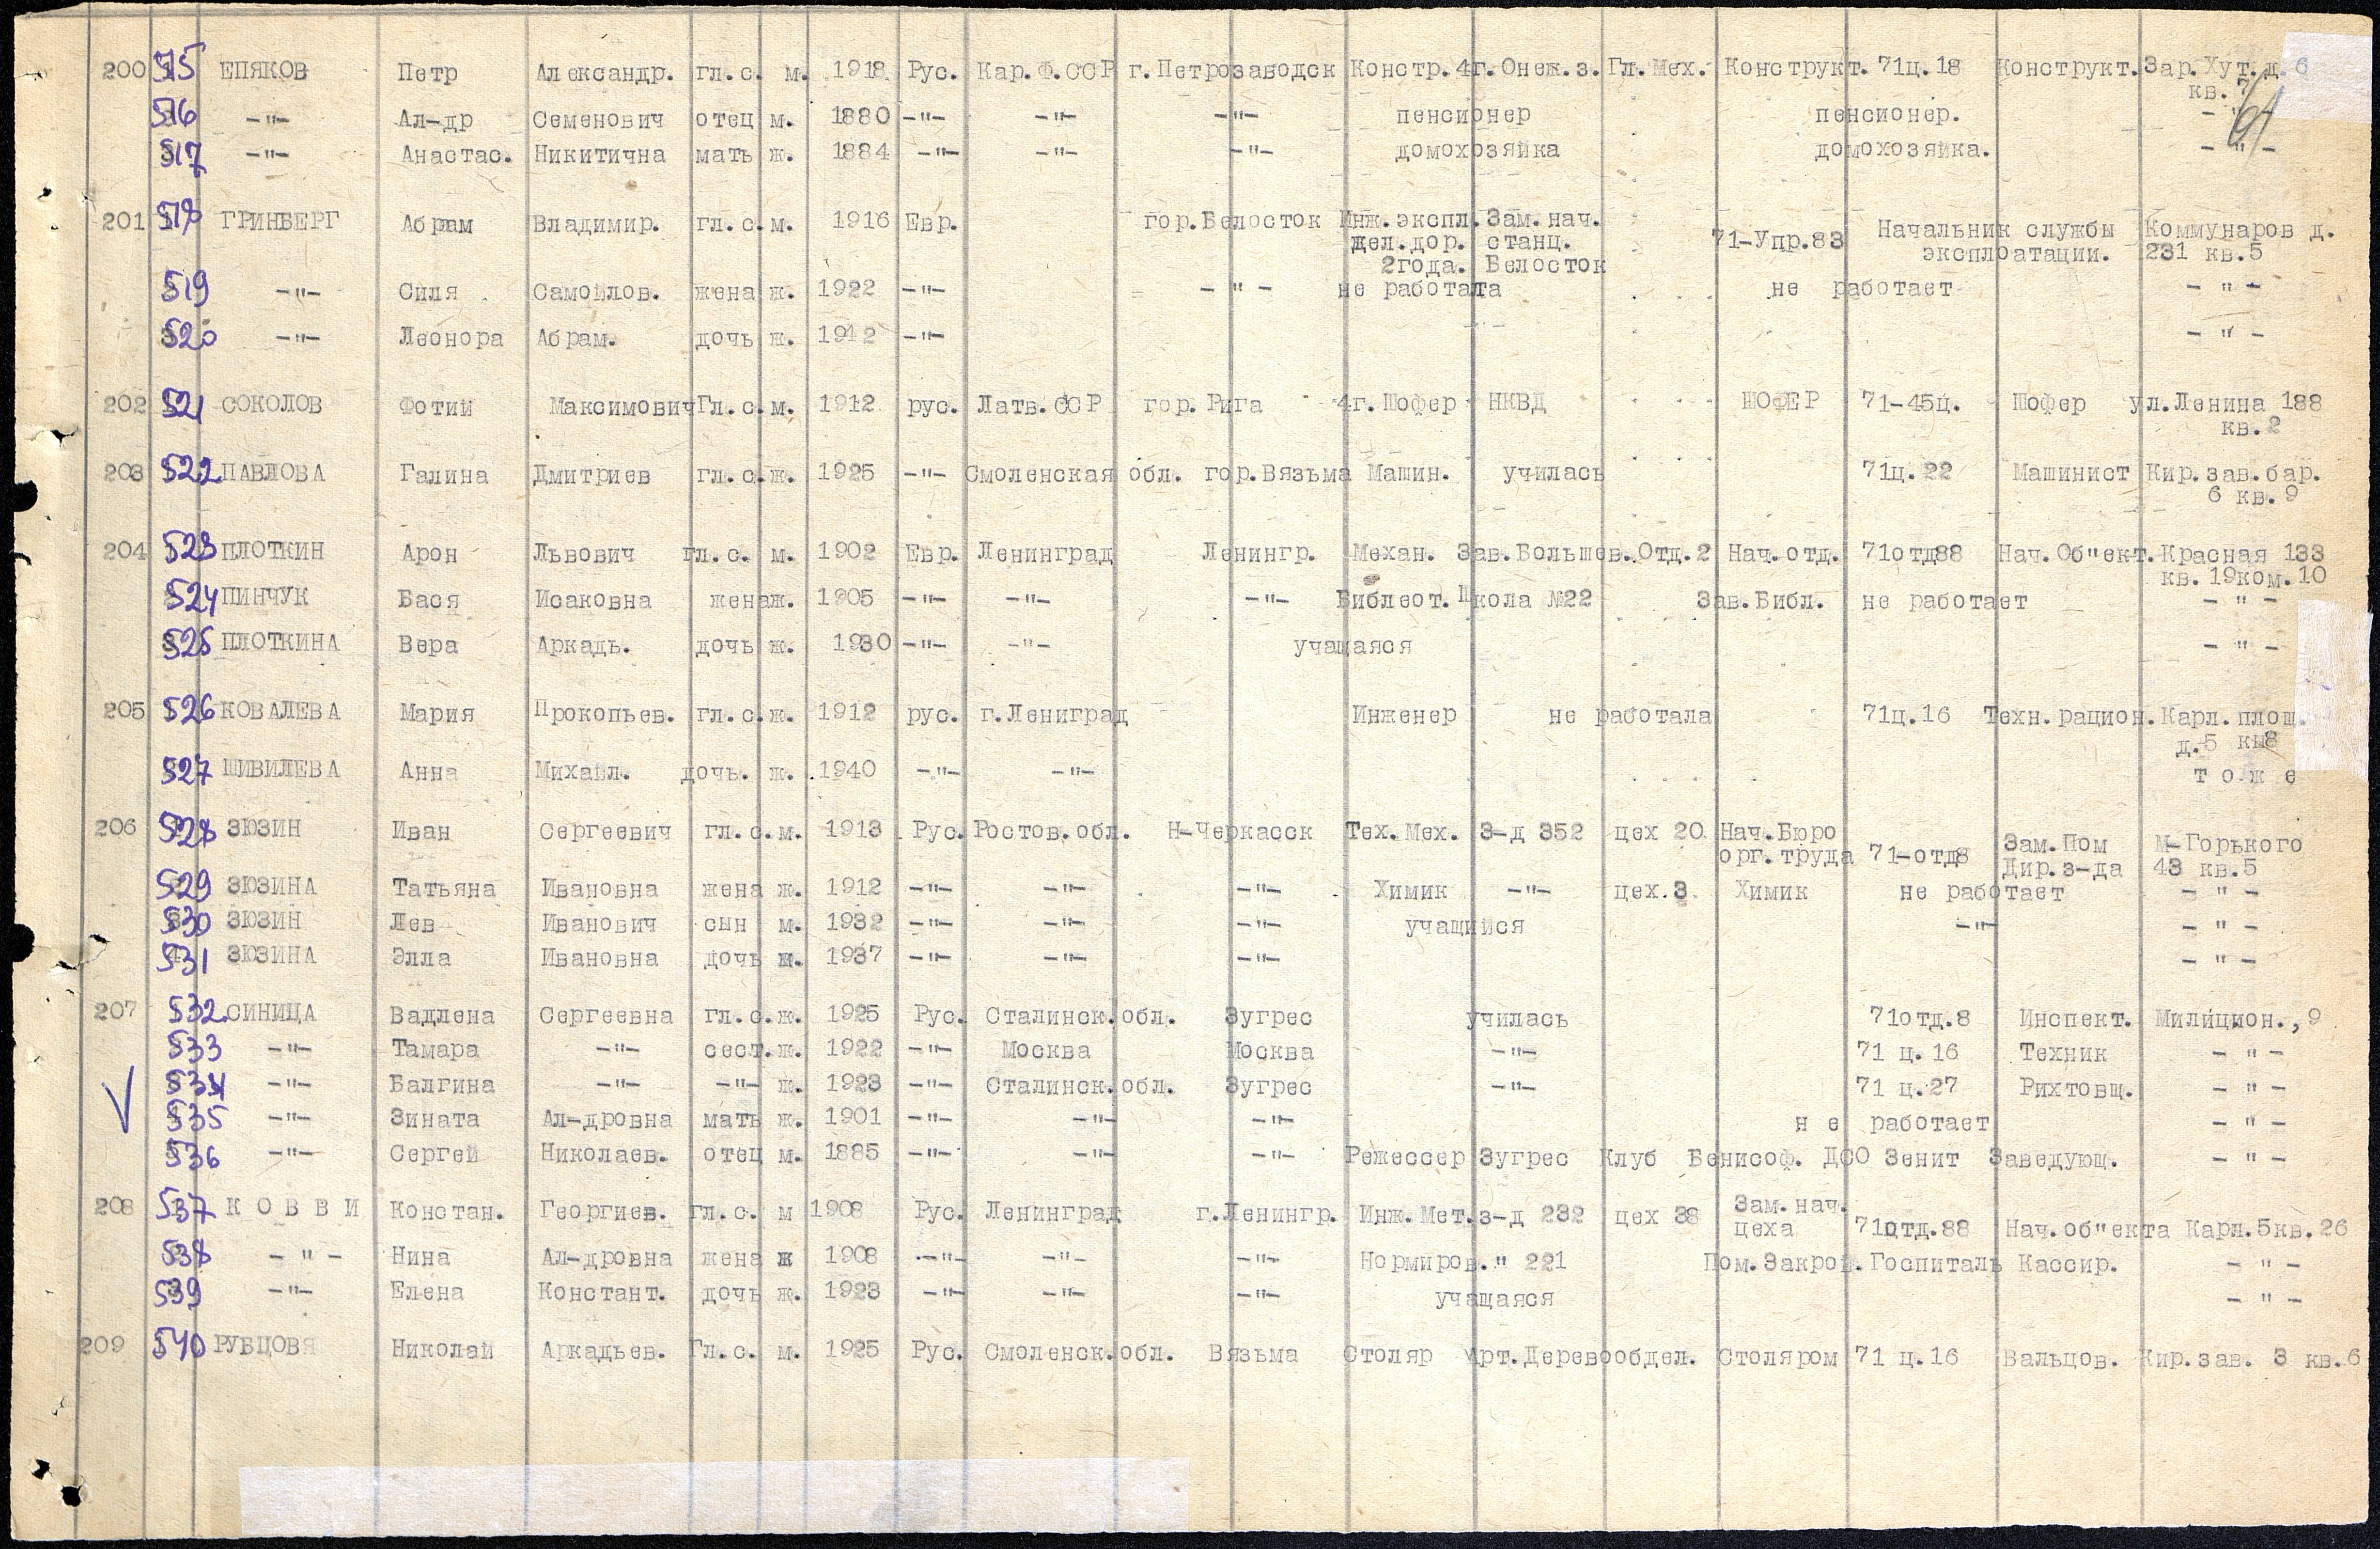 200 515 ЕПЯКОВ Петр Александр. гл.с. м. 1918 Рус. Кар.Ф.ССР г.Петрозаводск Констр.4г.Онеж.з.Гл.Мех. Конструкт. 71ц.18 Конструкт.Зар.Хут.д.6
кв.7
61
516 -"- Ал-др Семенович отец м. 1880 -"- -"- -"- пенсионер пенсионер. - " -
517 -"- Анастас. Никитична мать ж. 1884 -"- -"- -"- домохозяйка домохозяйка. - " -
201 518 ГРИНБЕРГ Абрам Владимир. гл.с.м. 1916 Евр. гор.Белосток Инж.экспл.Зам.нач. 71-Упр.83 Начальник службы Коммунаров д.
жел.дор. станц. эксплоатации. 231 кв.5
2года. Белосток
519 -"- Силя Самойлов. жена ж. 1922 -"- - " - не работата не работает - " -
520 -"- Леонора Абрам. дочь ж. 1942 -"- - " -
202 521 СОКОЛОВ Фотий Максимович Гл.с.м. 1912 рус. Латв.ССР гор.Рига 4г.Шофер НКВД ШОФЕР 71-45ц. Шофер ул.Ленина 188
кв.2
203 522 ПАВЛОВА Галина Дмитриев гл.с.ж. 1925 -"- Смоленская обл. гор.Вязьма Машин. училась 71ц.22 Машинист Кир.зав.бар.
6 кв.9
204 523 ПЛОТКИН Арон Львович гл.с. м. 1902 Евр. Ленинград Ленингр. Механ. Зав.Большев.Отд.2 Нач.отд. 71отд88 Нач.Об"ект.Красная 133
кв.19ком.10
524 ПИНЧУК Бася Исаковна жена ж. 1905 -"- -"- -"- Библеот.Школа №22 Зав.Библ. не работает - " -
525 ПЛОТКИНА Вера Аркадь. дочь ж. 1930 -"- -"- учащаяся - " -
205 526 КОВАЛЕВА Мария Прокопьев. гл.с.ж. 1912 рус. г.Лениград Инженер не работала 71ц.16 Техн.рацион.Карл.площ.
д.5 кв8
527 ШИВИЛЕВА Анна Михайл. дочь. ж. 1940 -"- -"- т о ж е
206 528 ЗЮЗИН Иван Сергеевич гл.с.м. 1913 Рус. Ростов.обл. Н-Черкасск Тех.Мех. З-д 352 цех 20 Нач.Бюро
орг.труда 71-отд8 Зам.Пом М-Горького
Дир.з-да 43 кв.5
529 ЗЮЗИНА Татьяна Ивановна жена ж. 1912 -"- -"- -"- Химик -"- цех.3 Химик не работает - " -
530 ЗЮЗИН Лев Иванович сын м. 1932 -"- -"- -"- учащийся -"- - " -
531 ЗЮЗИНА Элла Ивановна дочь ж. 1937 -"- -"- -"- - " -
207 532 СИНИЦА Вадлена Сергеевна гл.с.ж. 1925 Рус. Сталинск.обл. Зугрес училась 71отд.8 Инспект. Милицион.,9
533 -"- Тамара -"- сест.ж. 1922 -"- Москва Москва -"- 71 ц.16 Техник - " -
534 -"- Балгина -"- -"- ж. 1923 -"- Сталинск.обл. Зугрес -"- 71 ц.27 Рихтовщ. - " -
535 -"- Зината Ал-дровна мать ж. 1901 -"- -"- -"- н е работает - " -
536 -"- Сергей Николаев. отец м. 1885 -"- -"- -"- Режессер Зугрес Клуб Бенисоф. ДСО Зенит Заведующ. - " -
208 537 К О В В И Констан. Георгиев. гл.с. м 1908 Рус. Ленинград г.Ленингр. Инж.Мет.з-д 232 цех 38 Зам.нач.
цеха 71отд.88 Нач.об"екта Карл.5кв.26
538 - " - Нина Ал-дровна жена ж 1908 -"- -"- -"- Нормиров." 221 Пом.Закрой.Госпиталь Кассир. - " -
539 -"- Елена Констант. дочь ж. 1923 -"- -"- -"- учащаяся - " -
209 540 РУБЦОВЯ Николай Аркадьев. Гл.с. м. 1925 Рус. Смоленск.обл. Вязьма Столяр Арт.Деревообдел. Столяром 71 ц.16 Вальцов. Кир.зав. 3 кв.6